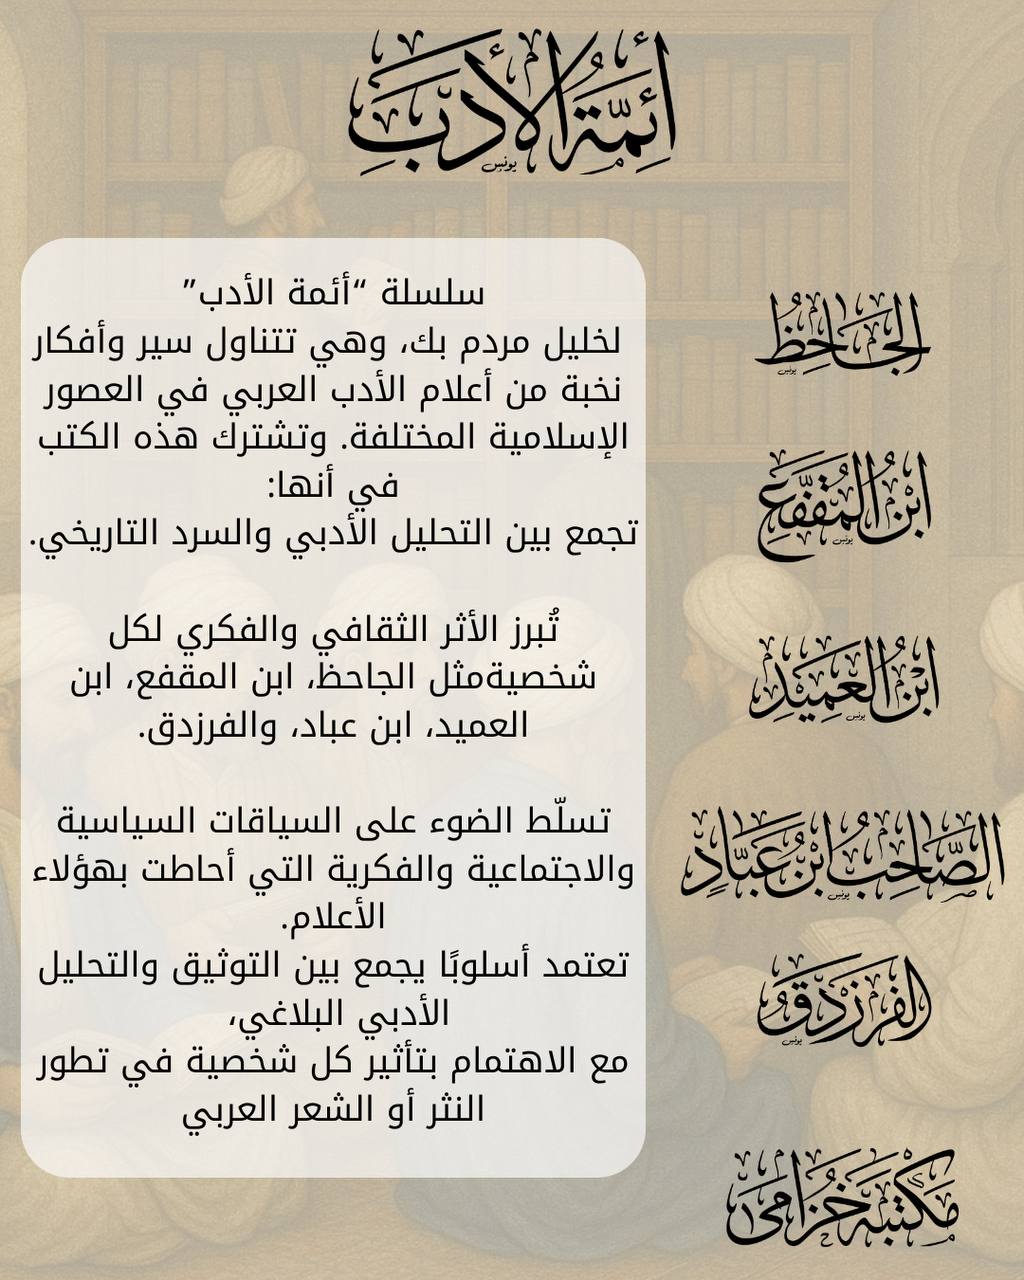 أَئِمَّةُ الأَدَبِ
يونس
سلسلة “أئمة الأدب”
لخليل مردم بك، وهي تتناول سير وأفكار
نخبة من أعلام الأدب العربي في العصور
الإسلامية المختلفة. وتشترك هذه الكتب
في أنها:
تجمع بين التحليل الأدبي والسرد التاريخي.
تُبرز الأثر الثقافي والفكري لكل
شخصيةمثل الجاحظ، ابن المقفع، ابن
العميد، ابن عباد، والفرزدق.
تسلّط الضوء على السياقات السياسية
والاجتماعية والفكرية التي أحاطت بهؤلاء
الأعلام.
تعتمد أسلوبًا يجمع بين التوثيق والتحليل
الأدبي البلاغي،
مع الاهتمام بتأثير كل شخصية في تطور
النثر أو الشعر العربي
الجَاحِظُ
يونس
ابْنُ المُقَفَّعِ
يونس
ابْنُ العَمِيدِ
يونس
الصَّاحِبُ ابْنُ عَبَّادٍ
يونس
الفَرَزْدَقُ
يونس
مَكْتَبَة خُزَامَى